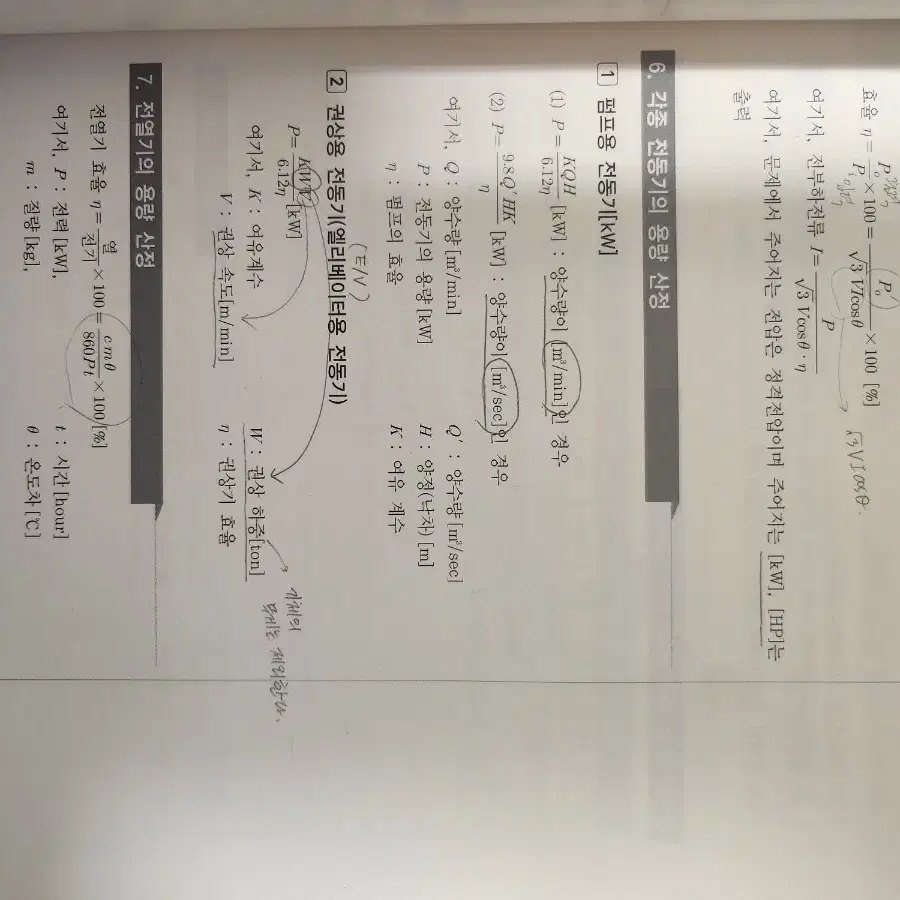 효율 η = P₀/Pᵢ × 100 = P₀/(√3 VIcosθ) × 100 [%]
√3 VIcosθ.
여기서, 전부하전류 I = P/(√3 Vcosθ · η)
여기서, 문제에서 주어지는 전압은 정격전압이며 주어지는 [kW], [HP]는
출력
6. 각종 전동기의 용량 산정
1 펌프용 전동기[kW]
(1) P = KQH/6.12η [kW] : 양수량이 [m³/min]인 경우
(2) P = 9.8Q′HK/η [kW] : 양수량이 [m³/sec]인 경우
여기서, Q : 양수량 [m³/min] Q′ : 양수량 [m³/sec]
P : 전동기의 용량 [kW] H : 양정(낙차) [m]
η : 펌프의 효율 K : 여유 계수
(E/V)
2 권상용 전동기(엘리베이터용 전동기)
P = KWV/6.12η [kW]
여기서, K : 여유계수 W : 권상 하중[ton]
V : 권상 속도[m/min] η : 권상기 효율
기체의
무게는 제외한다.
7. 전열기의 용량 산정
전열기 효율 η = 열/전기 × 100 = cmθ/860Pt × 100 [%]
여기서, P : 전력 [kW], t : 시간 [hour]
m : 질량 [kg], θ : 온도차 [℃]